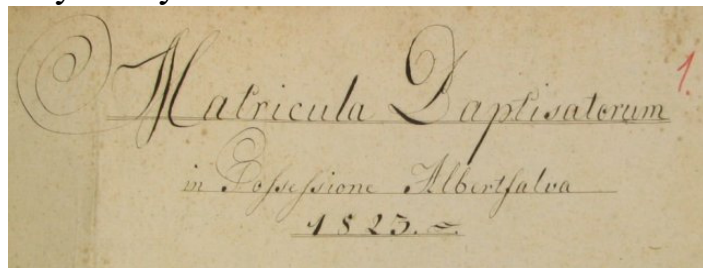 Matricula Baptisatorum 1.
in Possessione Albertfalva
1823.